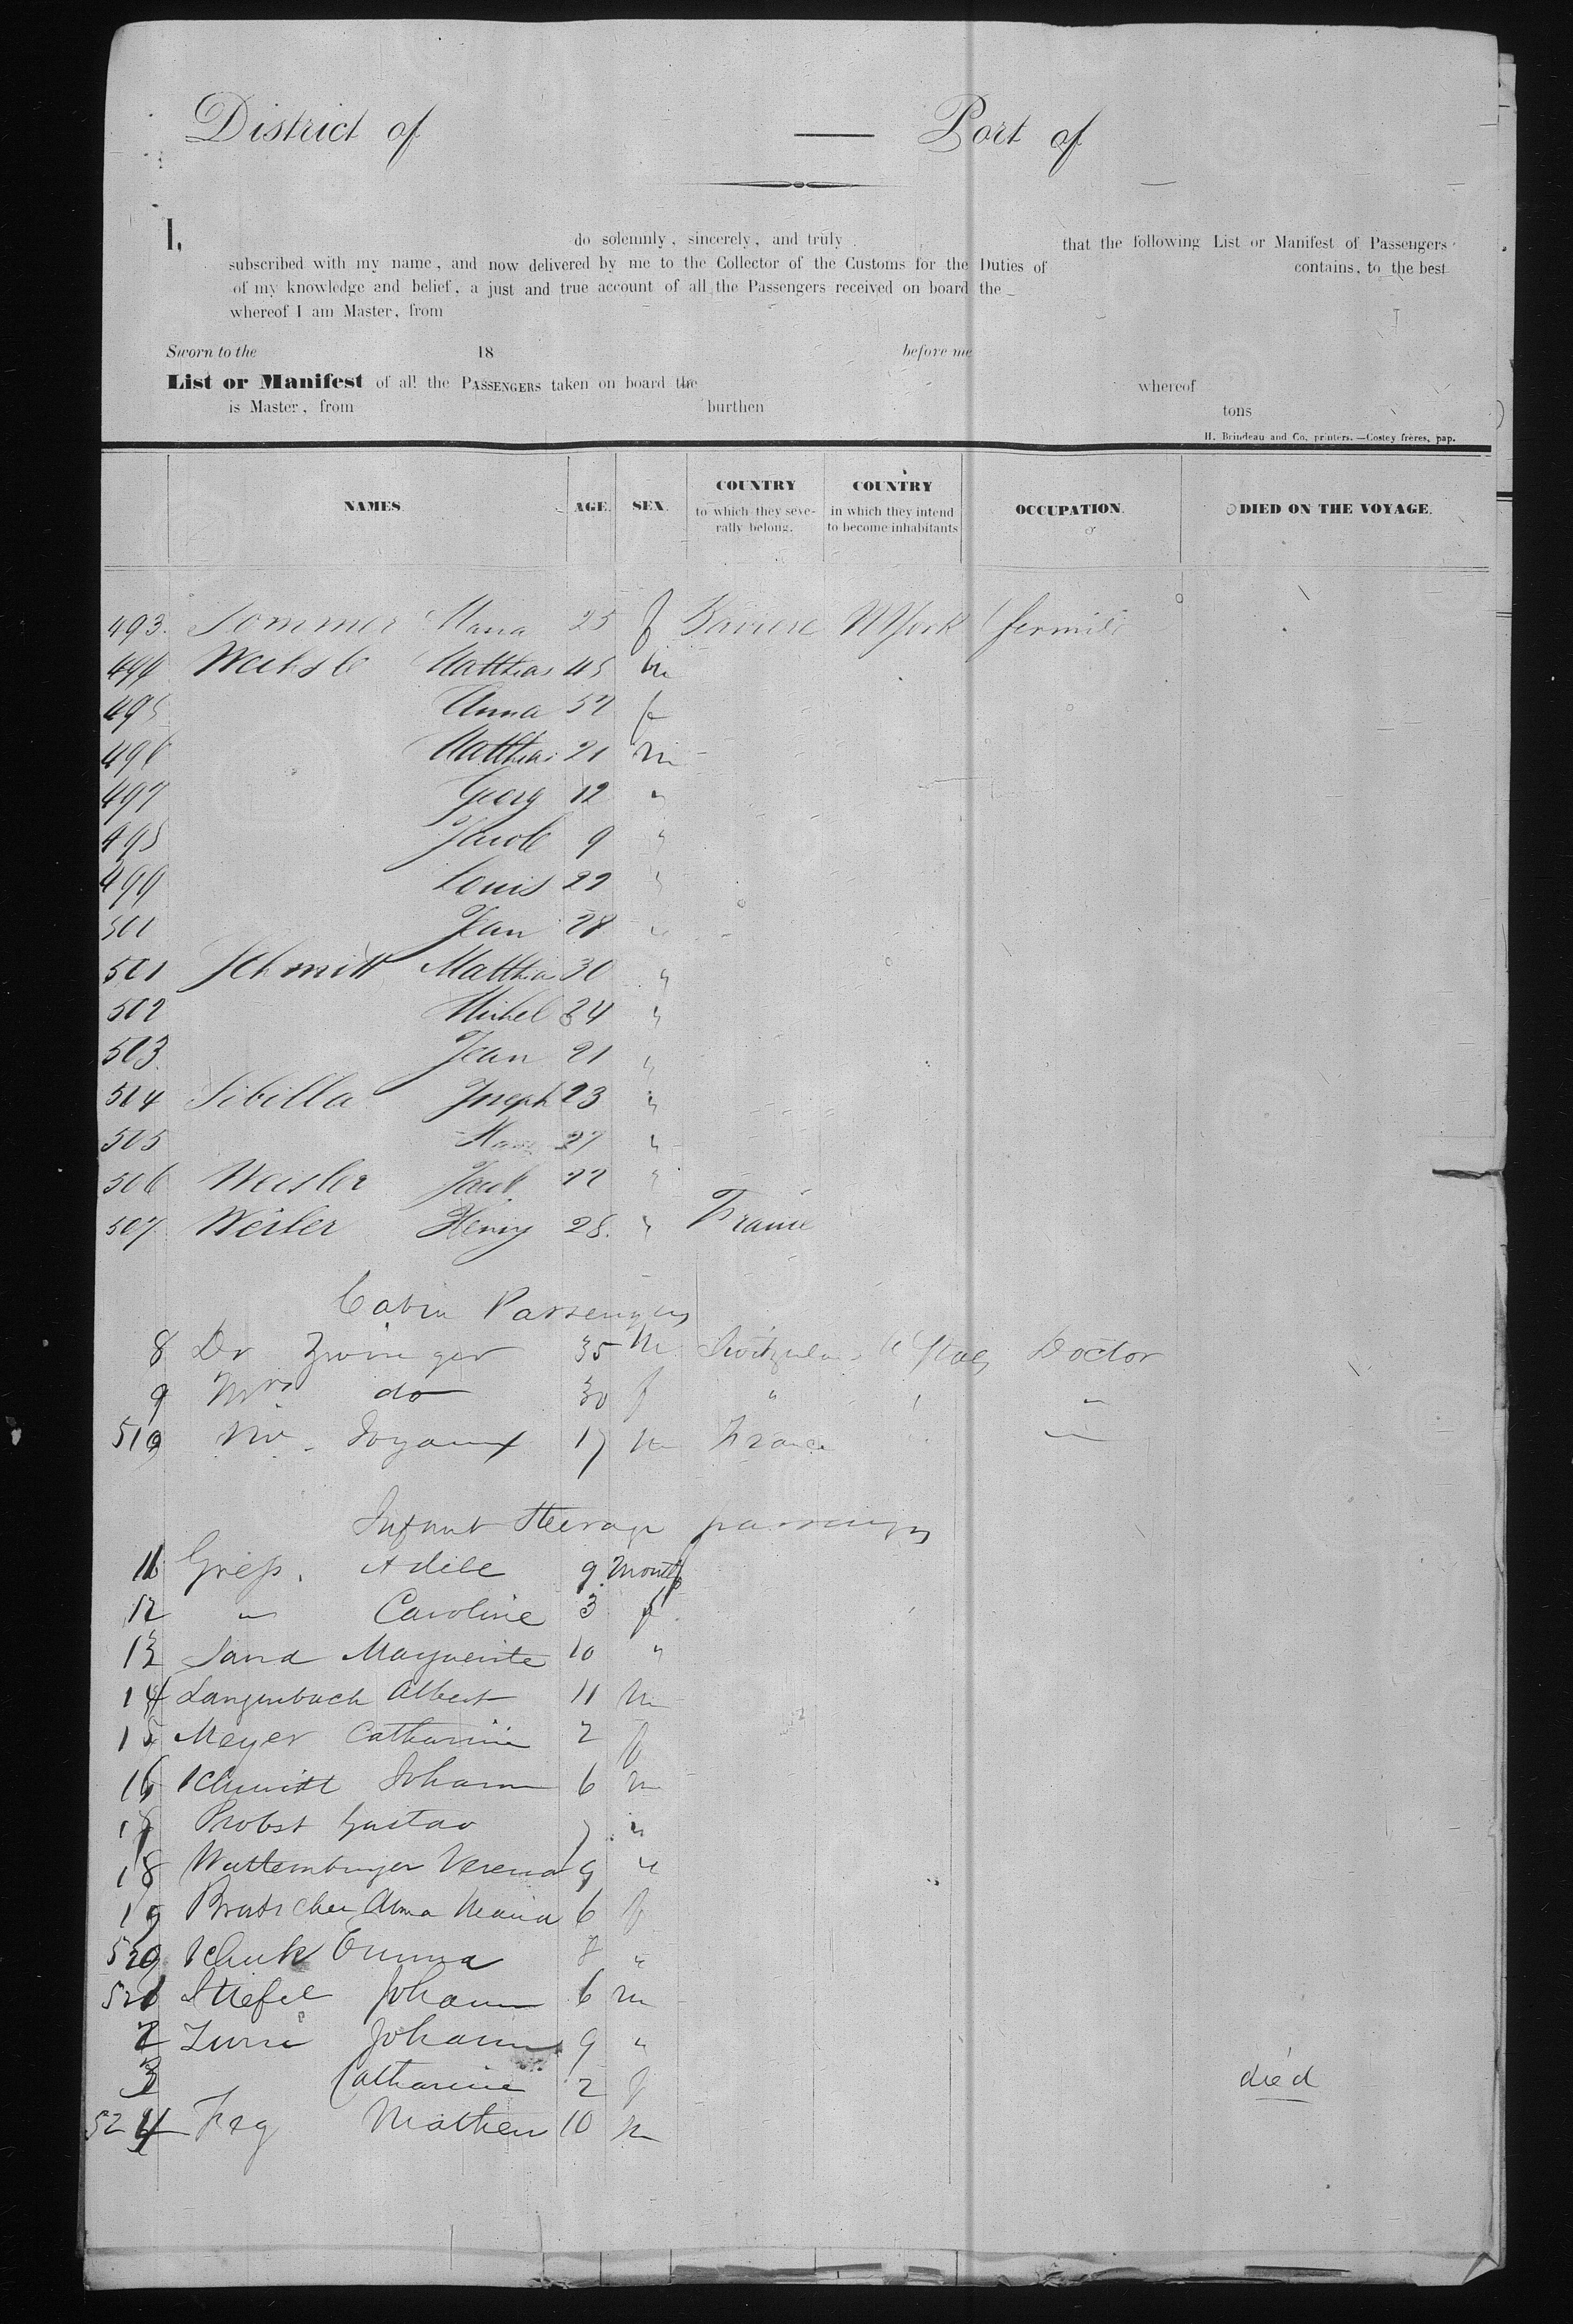 District of — Port of
I, do solemnly, sincerely, and truly that the following List or Manifest of Passengers
subscribed with my name, and now delivered by me to the Collector of the Customs for the Duties of contains, to the best
of my knowledge and belief, a just and true account of all the Passengers received on board the
whereof I am Master, from
Sworn to the 18 before me
List or Manifest of all the PASSENGERS taken on board the whereof
is Master, from burthen tons
H. Brindeau and Co, printers. — Costey frères, pap.
NAMES. AGE. SEX. COUNTRY to which they seve-rally belong. COUNTRY in which they intend to become inhabitants OCCUPATION. DIED ON THE VOYAGE.
493. Sommer Maria 25 f Baviere NYork
494 Matthias 45 m
495 Anna 57 f
496 Matthias 21 m
497 Georg 12 "
498 Jacob 9 "
499 Louis 22 "
501 Jean 28 "
501 Schmitt Matthias 30 "
502 Michel 24 "
503. Jean 21 "
504 Sibilla Joseph 23 "
505 27 "
506 Weisler Jacob 22 "
507 Weiler Henry 28. " France
Cabin Passengers
8 Dr Zwinger 35 m Doctor
9 Mrs do 30 f " "
510 17 m France "
Infant Steerage passengers
11 Gress. Adele 9 Month
12 " Caroline 3 f
13 Sand Marguerite 10 "
14 Langenbach Albert 11 m
15 Meyer Catharine 2 f
16 Schmitt Johann 6 m
17 Probst Gustav 7 "
18 Verena 9 "
19 Anna Maria 6 f
520 Schuk Emma 8 "
521 Stiefel Johann 6 m
2 Johann 9 "
3 Catharine 2 f died
524 Mathew 10 m